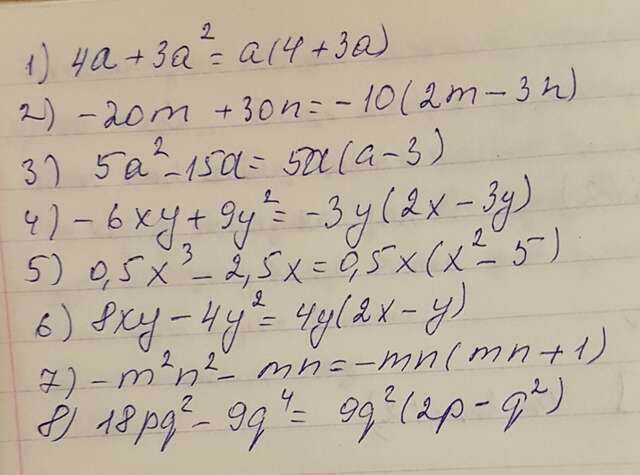 1) 4a + 3a² = a(4 + 3a)
2) -20m + 30n = -10(2m - 3n)
3) 5a² - 15a = 5a(a - 3)
4) -6xy + 9y² = -3y(2x - 3y)
5) 0,5x³ - 2,5x = 0,5x(x² - 5)
6) 8xy - 4y² = 4y(2x - y)
7) -m²n² - mn = -mn(mn + 1)
8) 18pq² - 9q⁴ = 9q²(2p - q²)